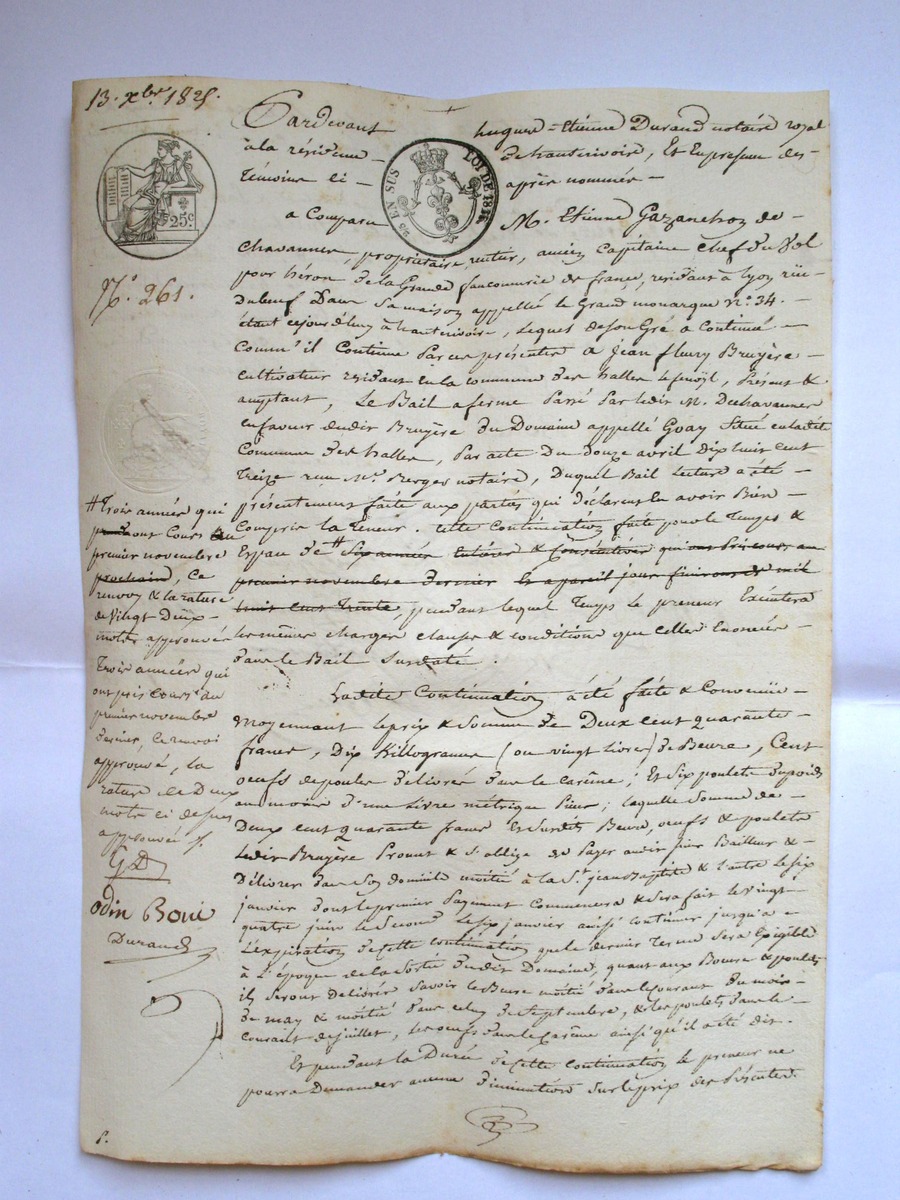 13. xbre. 1825.
Pardevant hugues = Etienne Durand notaire royal
à la résidence de hauterivoire, Et En presence des
Témoins ci - après nommés -
25 c.
25 EN SUS
LOI DE 1816
N.o 261.
a Comparu M. Etienne Gazanchon de -
Chavannes, propriétaire, rentier, ancien Capitaine Chef du Vol
pour héron de la Grande fauconnerie de france, résidant à Lyon rüe
Dubœuf Dans Sa maison appellée le Grand monarque n.o 34. -
étant cejourd'huy à hauterivoire, lequel de son Gré a Continué -
Comm'il Continue Par ces présentes a jean fleury Bruyère -
cultivateur résidant en la commune des halles lefenoÿl, Présent &
acceptant, Le Bail a ferme Passé Par ledit M. Dechavannes
en faveur dudit Bruyère du Domaine appellé Goay Situé en ladite
Commune des halles, Par acte du Douze avril dix huit cent
Treize reçu Me. Berger notaire, Duquel Bail Lecture a été -
présentement faite aux parties qui déclarent en avoir Bien -
Compris la Teneur. Cette Continuation faite pour le Temps &
Espace de # Six années Entières & Consécutives qui ont Pris cours au
premier novembre dernier Et a pareil jour finiront de mil
huit cent Trente pendant lequel Temps Le preneur Exécutera
les mêmes charges clauses & conditions que celles Enoncées -
Dans le Bail Susdaté.
# Trois années qui
ont Cours au
premier novembre
prochain, Ce
renvoy & la rature
de Vingt Deux
mots approuvés
Trois années qui
ont pris Cours au
premier novembre
dernier, Ce renvoi
approuvé, La
rature de Deux
mots ci dessus
approuvée
GD
odin Boui
Durand
Ladite Continuation a été faite & Convenüe -
Moyennant le prix & Somme de Deux cent quarante
francs, Dix Killogrames (ou vingt Livres) de Beure, Cent
oeufs de poules délivrés dans le carême; Et Six poulets Du poids
au moins d'une Livre métrique Pièce; laquelle Somme de -
Deux cent quarante francs Et Susdits Beure, oeufs & poulets
Ledit Bruyère Promet & S'oblige de Payer audit Sieur Bailleur & -
Délivrer dans Son domicile moitié à la St. jean Baptiste & l'autre le Six
janvier dont le premier Payement Commencera & Sera fait le vingt
quatre juin le Second le Six janvier ainsi continuer jusqu'a -
L'expiration de cette Continuation que le dernier Terme Sera Exigible
à L'époque de la Sortie dudit Domaine, quant aux Beures & poulets
ils Seront Délivrés Savoir le Beure moitié dans le Courant du mois -
de may & moitié dans celuy de Septembre, & les poulets dans le
courant de juillet, les oeufs dans le Carême ainsi qu'il a été dit.
Et pendant la Durée de cette Continuation le preneur ne
pourra Demander aucune diminution Sur le prix des Présentes.